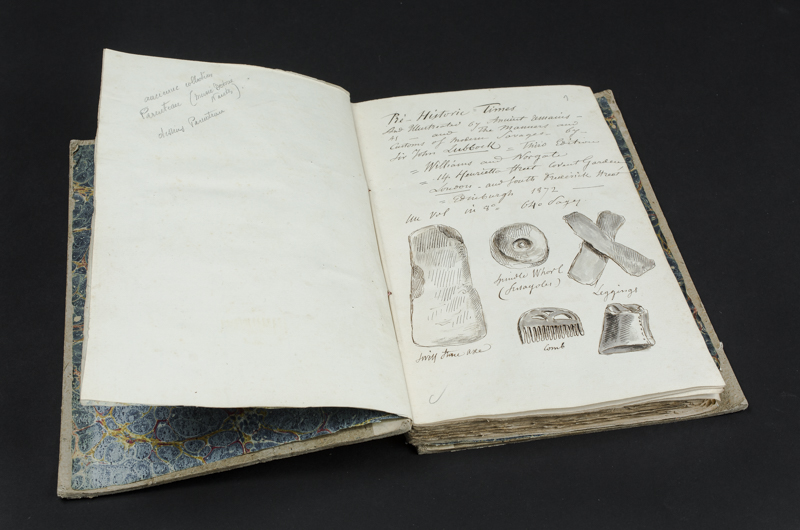 aucune collection
Parisienne
dessins Parisiens
Pré-Historic Times
And Illustrated by Ancient remains -
as - and The Manners and
Customs of Modern Savages - by -
Sir John Lubbock = Third Edition
= Williams and Norgate
= 14 Henrietta Street Covent Garden
London - and South Frederick Street
= Edinburgh 1872 —
Un vol in 8°. 640 Pages
Spindle Whorl
(fusayoles)
Leggings
Comb
Stone axe